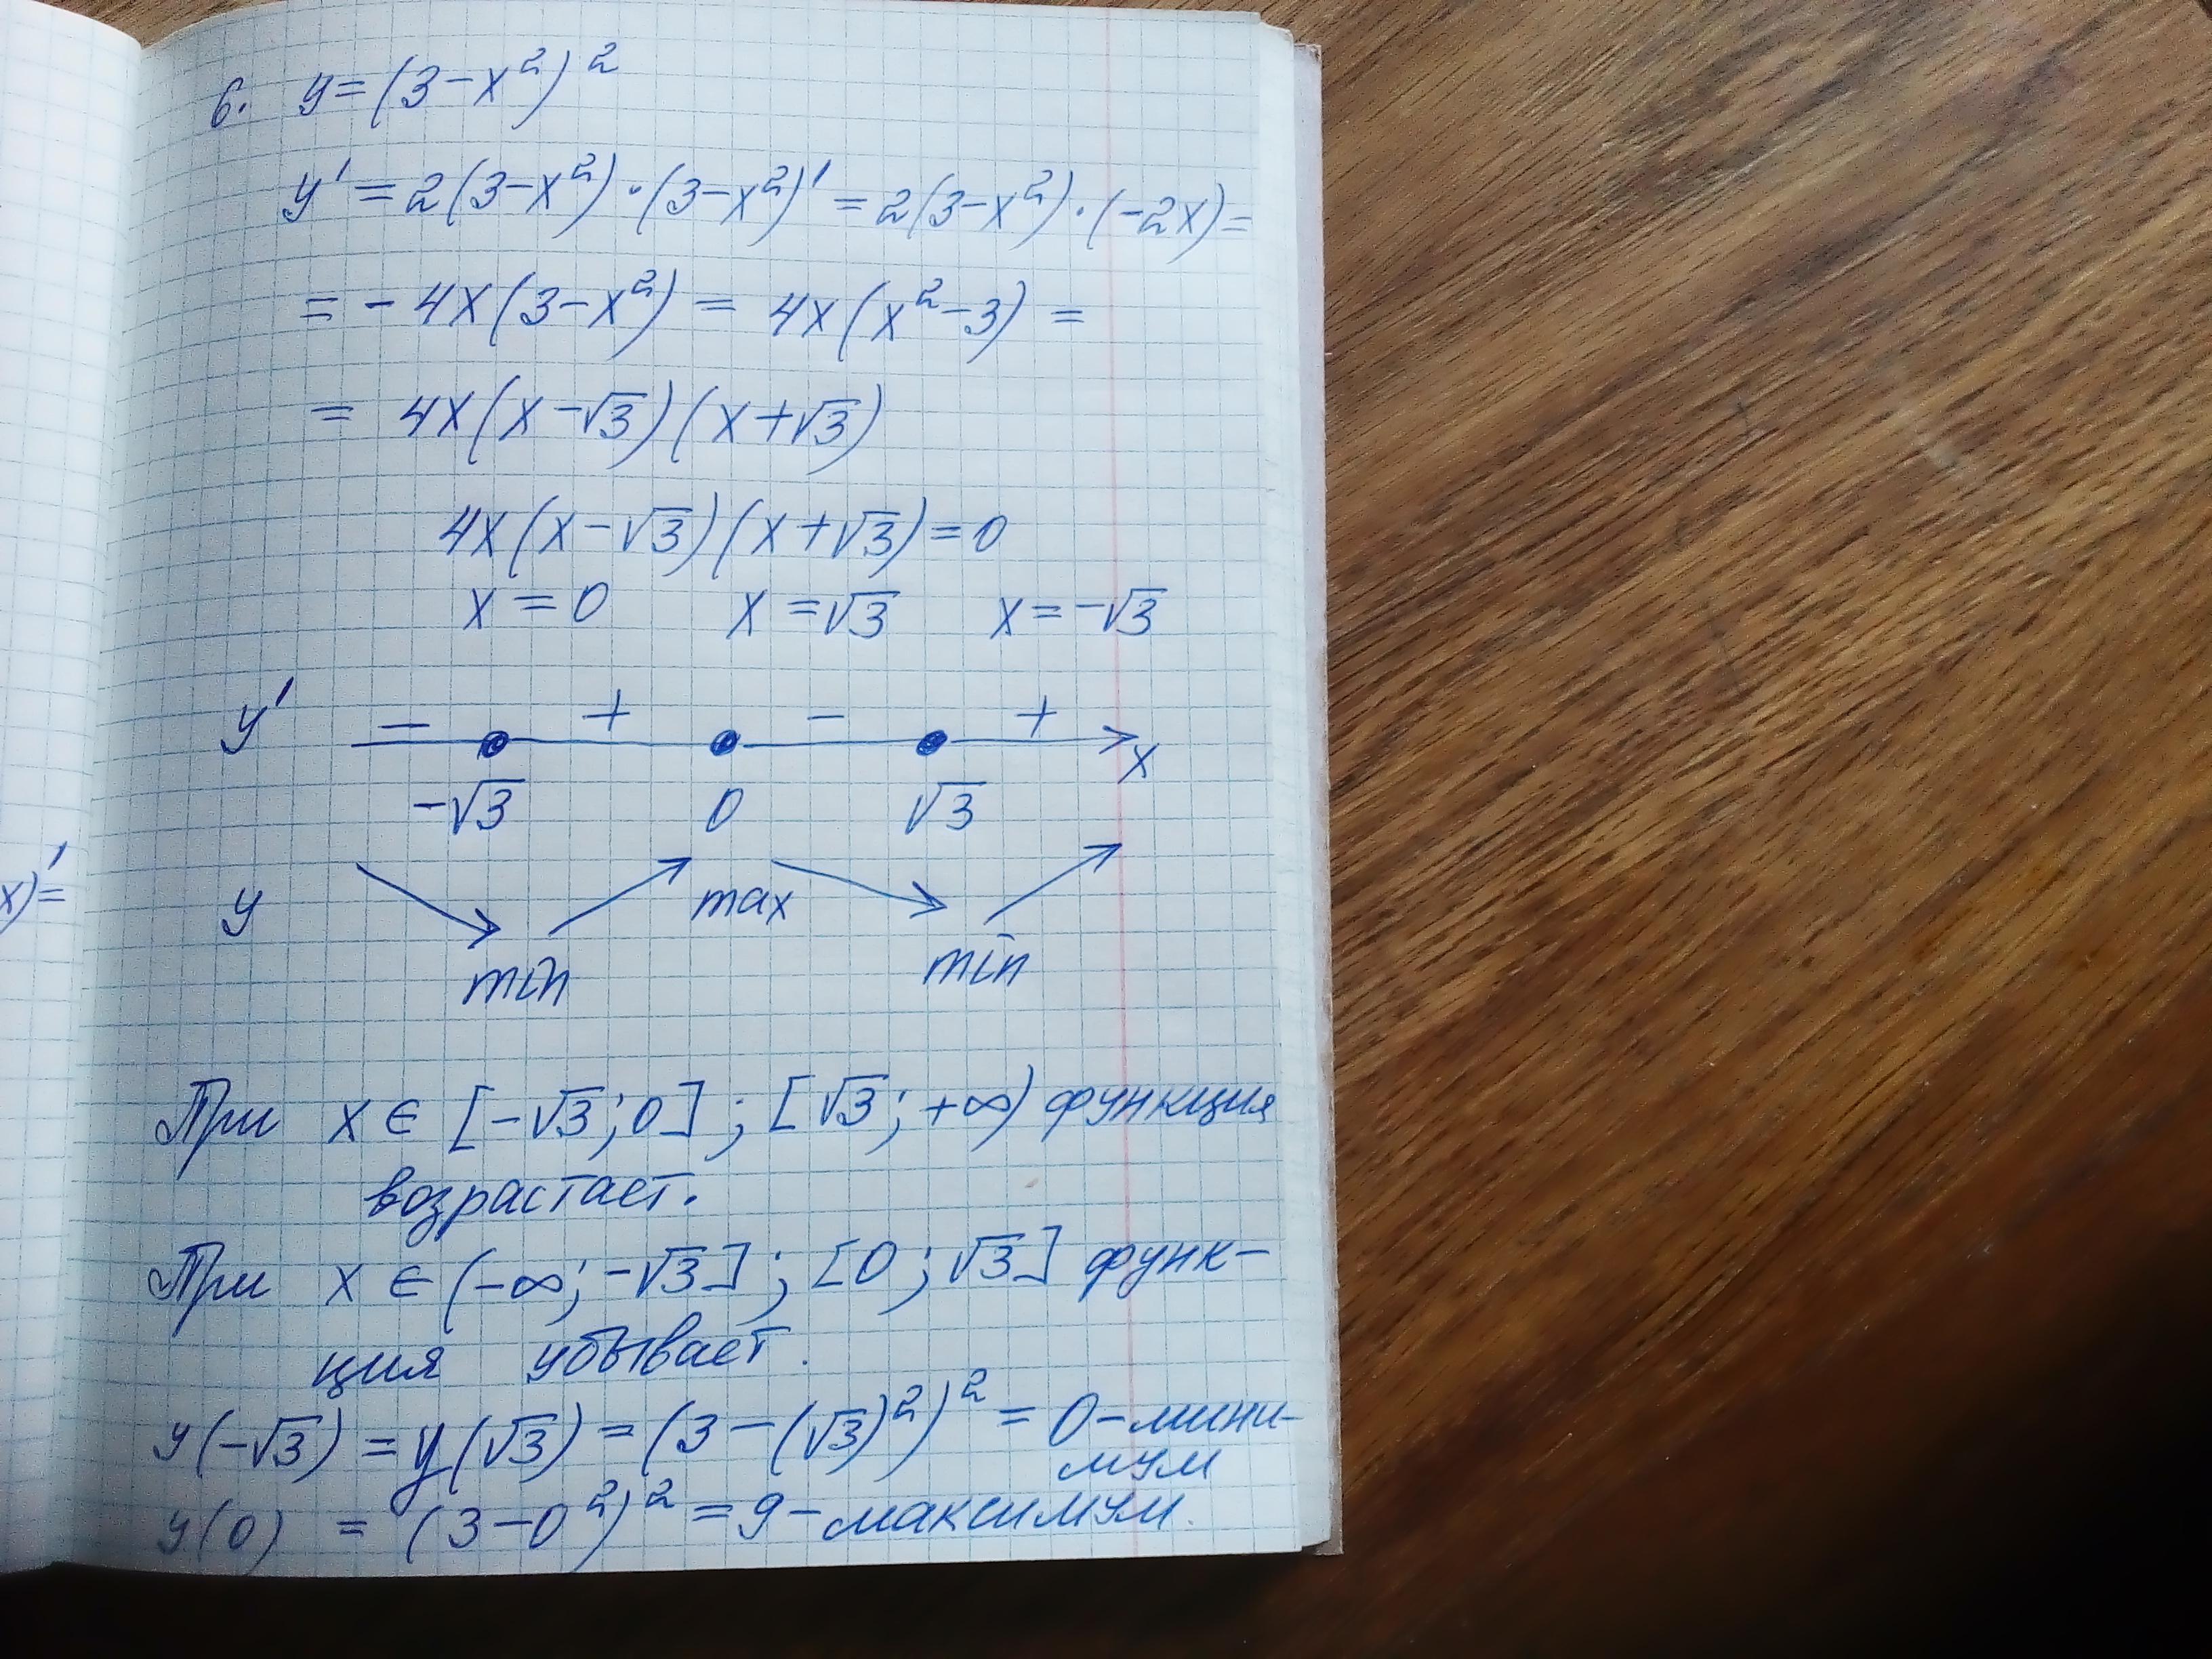 6. y = (3 − x²)²
y' = 2(3 − x²) · (3 − x²)' = 2(3 − x²) · (−2x) =
= − 4x(3 − x²) = 4x(x² − 3) =
= 4x(x − √3)(x + √3)
4x(x − √3)(x + √3) = 0
x = 0 x = √3 x = −√3
y' − + − +
x
−√3 0 √3
y max
min min
При x ∈ [−√3; 0] ; [√3; +∞) функция
возрастает.
При x ∈ (−∞; −√3] ; [0; √3] функ-
ция убывает.
y(−√3) = y(√3) = (3 − (√3)²)² = 0 – мини-
мум
y(0) = (3 − 0²)² = 9 – максимум.
x)' =